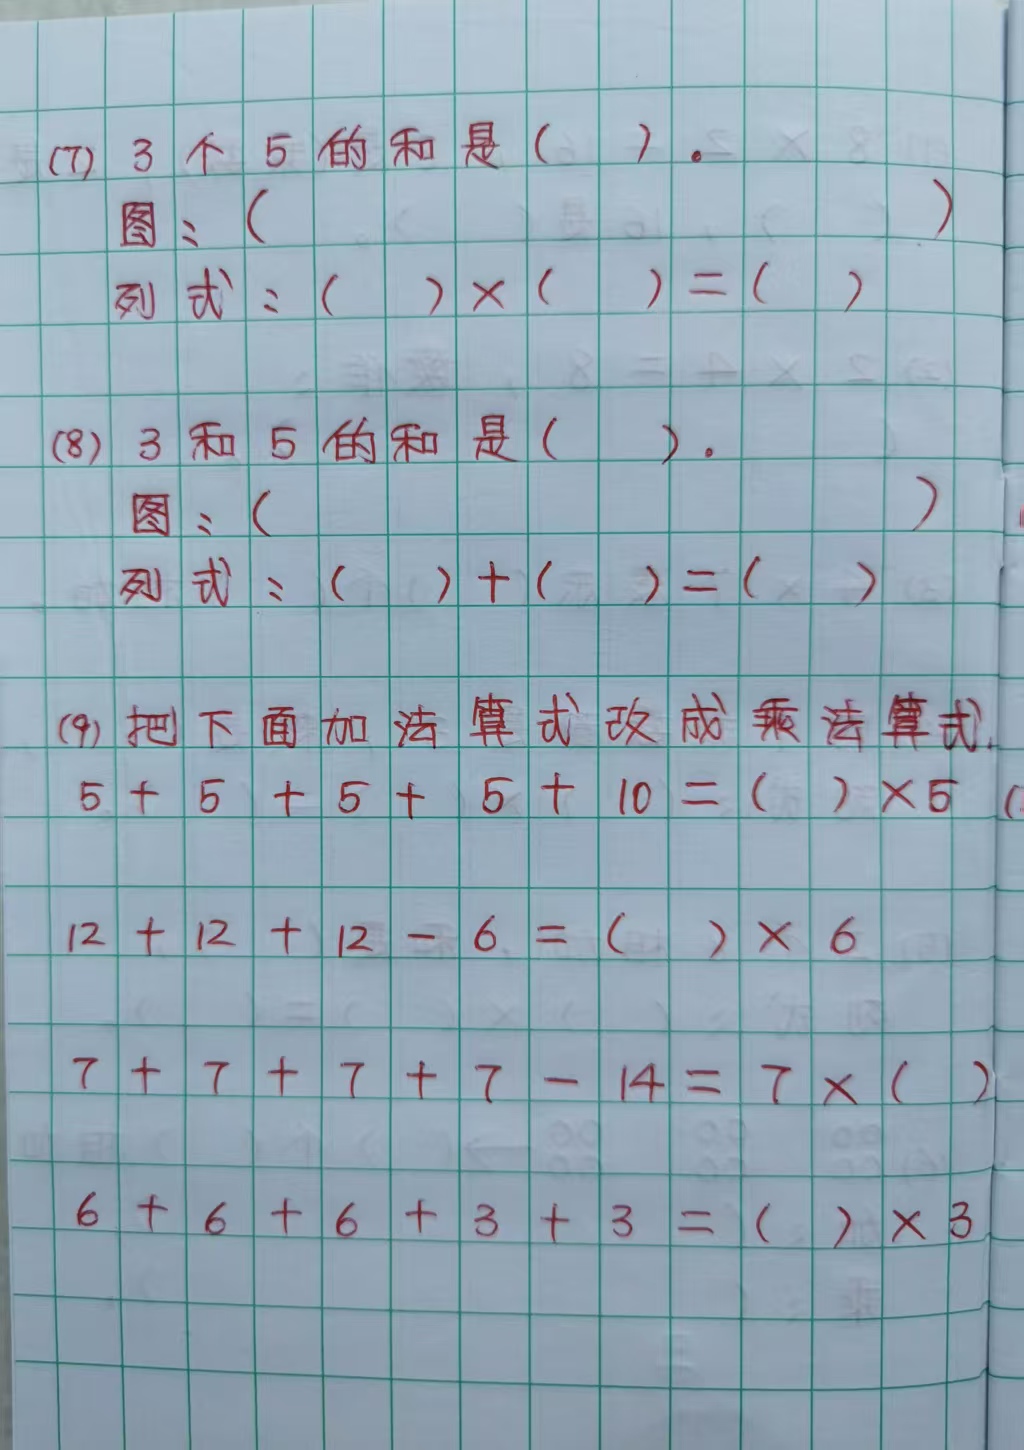 (7) 3个5的和是(    ).
图:(                    )
列式:(    )×(    )=(    )
(8) 3和5的和是(    ).
图:(                    )
列式:(    )+(    )=(    )
(9) 把下面加法算式改成乘法算式.
5+5+5+5+10=(    )×5
12+12+12-6=(    )×6
7+7+7+7-14=7×(    )
6+6+6+3+3=(    )×3